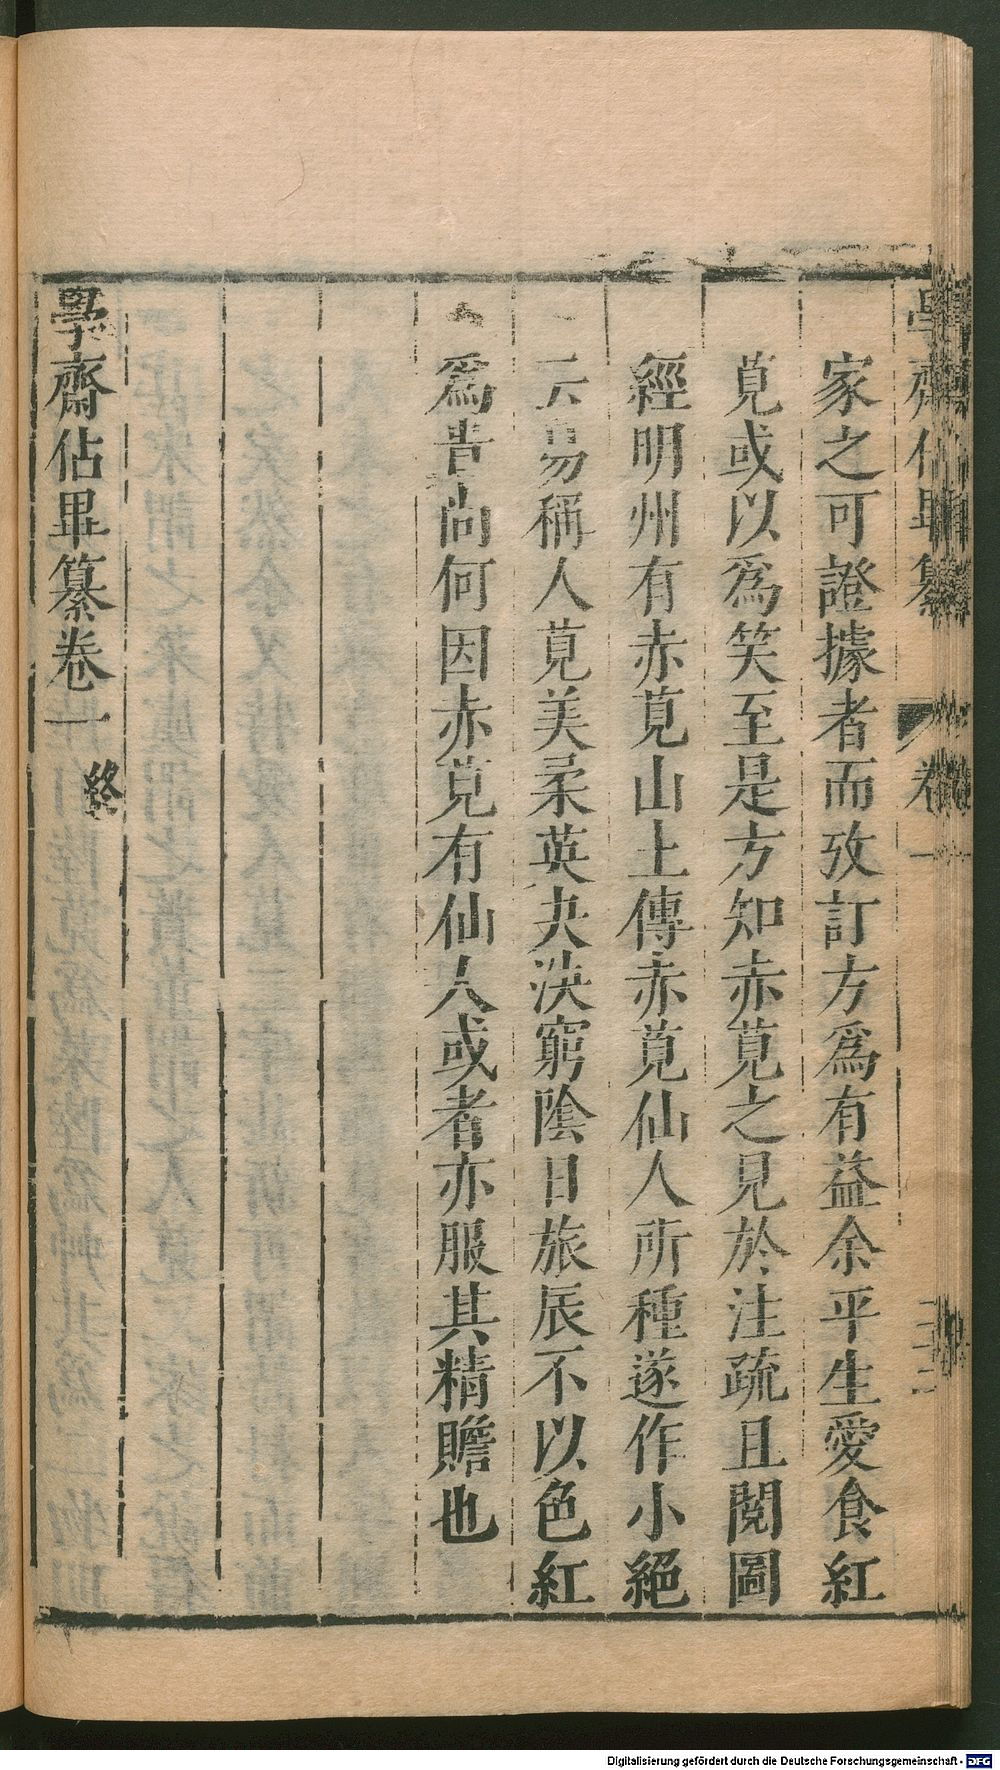 家之可證據者而攷訂方爲有益余平生愛食紅
莧或以爲笑至是方知赤莧之見於注疏且閱圖
經明州有赤莧山上傳赤莧仙人所種遂作小絕
云易稱人莧美柔英夬決窮陰日旅辰不以色紅
爲尚何因赤莧有仙人或者亦服其精贍也
學齋佔畢纂卷一
終
卷一
Digitalisierung gefördert durch die Deutsche Forschungsgemeinschaft - DFG